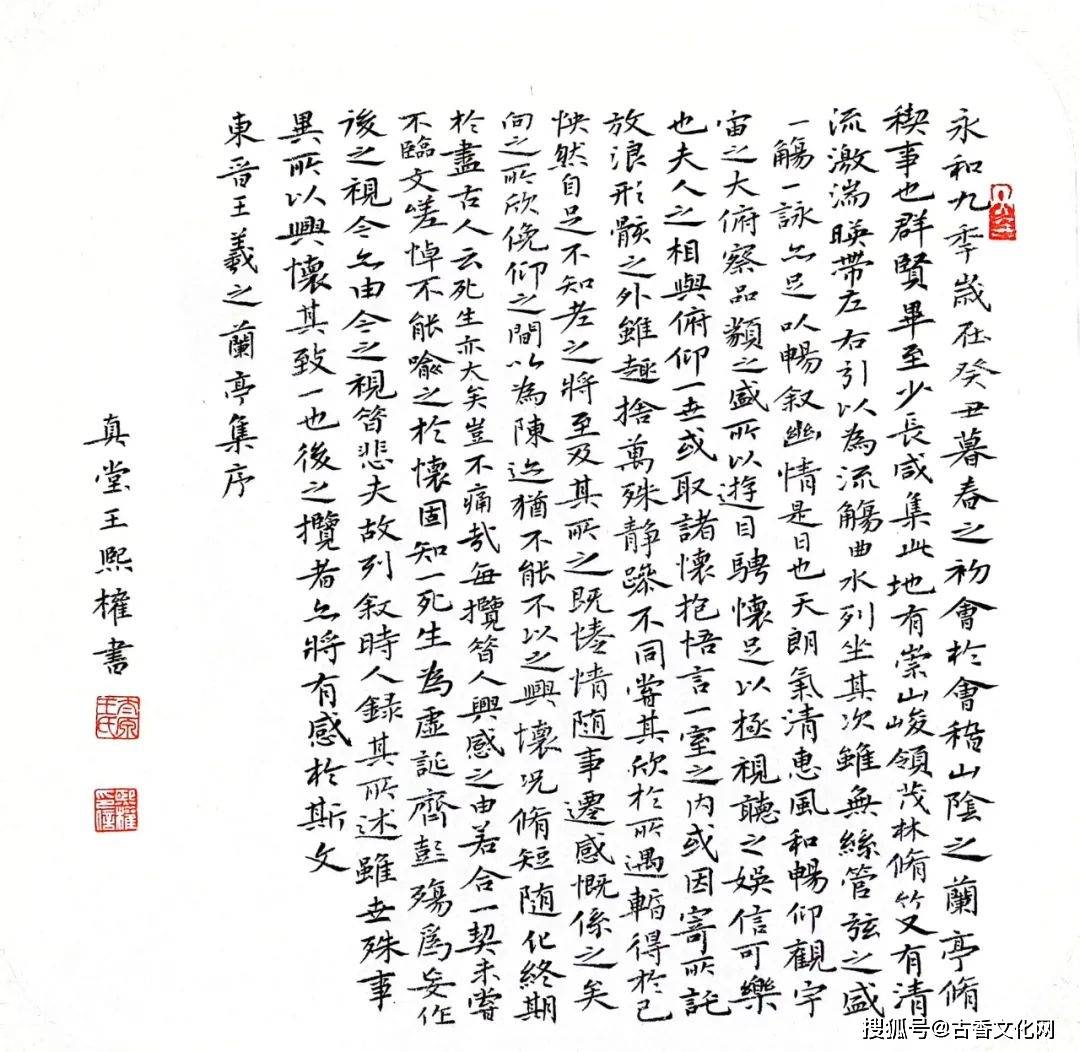 永和九季歲在癸丑暮春之初會於會稽山陰之蘭亭脩
稧事也群賢畢至少長咸集此地有崇山峻領茂林脩竹又有清
流激湍暎帶左右引以為流觴曲水列坐其次雖無絲管弦之盛
一觴一詠亦足以暢叙幽情是日也天朗氣清惠風和暢仰觀宇
宙之大俯察品類之盛所以遊目騁懷足以極視聽之娛信可樂
也夫人之相與俯仰一世或取諸懷抱悟言一室之內或因寄所託
放浪形骸之外雖趣捨萬殊静躁不同當其欣於所遇輙得於己
怏然自足不知老之將至及其所之既惓情随事遷感慨係之矣
向之所欣俛仰之間以為陳迹猶不能不以之興懷况脩短随化終期
於盡古人云死生亦大矣豈不痛哉每攬昔人興感之由若合一契未嘗
不臨文嗟悼不能喻之於懷固知一死生為虛誕齊彭殤為妄作
後之視今亦由今之視昔悲夫故列叙時人録其所述雖世殊事
異所以興懷其致一也後之攬者亦將有感於斯文
東晉王羲之蘭亭集序
真堂王熙權書
太原王氏
搜狐号@古香文化网